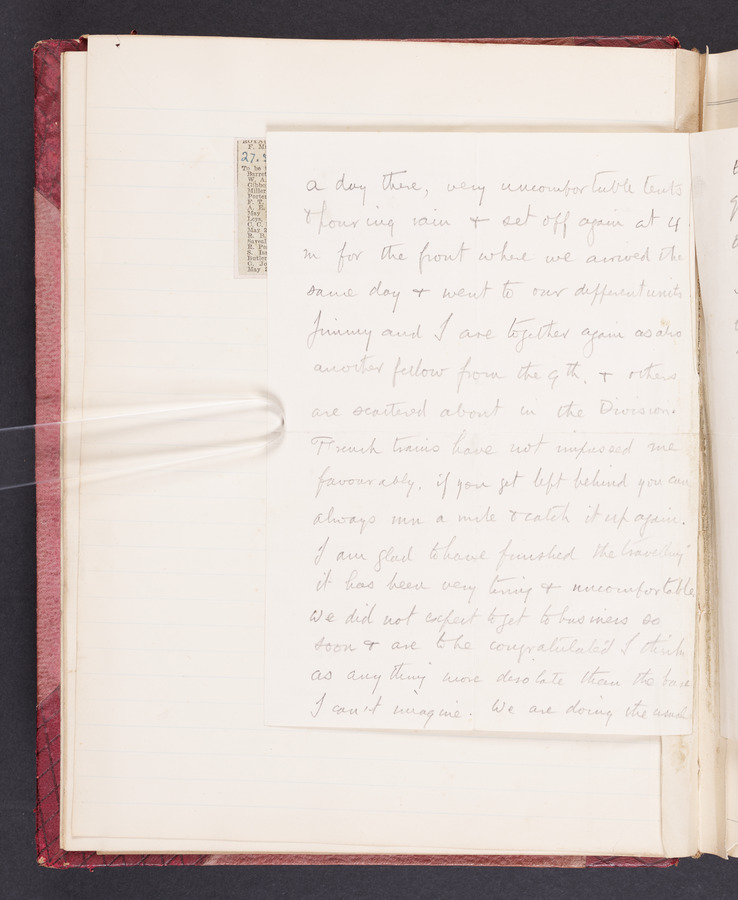 F. M
27.
To be
Barret
W. A.
Gibbo
Miller
Porter
F. T.
A. E.
May
Lays,
C. C.
May 2
R. D.
S. In
Butler
C. Jo
May
a day there, very uncomfortable tents
& pouring rain + set off again at 4
m for the front where we arrived the
same day + went to our different units.
Jimmy and I are together again as also
another fellow from the 9th. + others
are scattered about in the Division.
French trains have not impressed me
favourably. if you get left behind you can
always run a mile & catch it up again.
I am glad to have finished the travelling
it has been very tiring + uncomfortable
We did not expect to get to business so
soon + are to be congratulated I think
as any thing more desolate than the base
I can't imagine. We are doing the usual